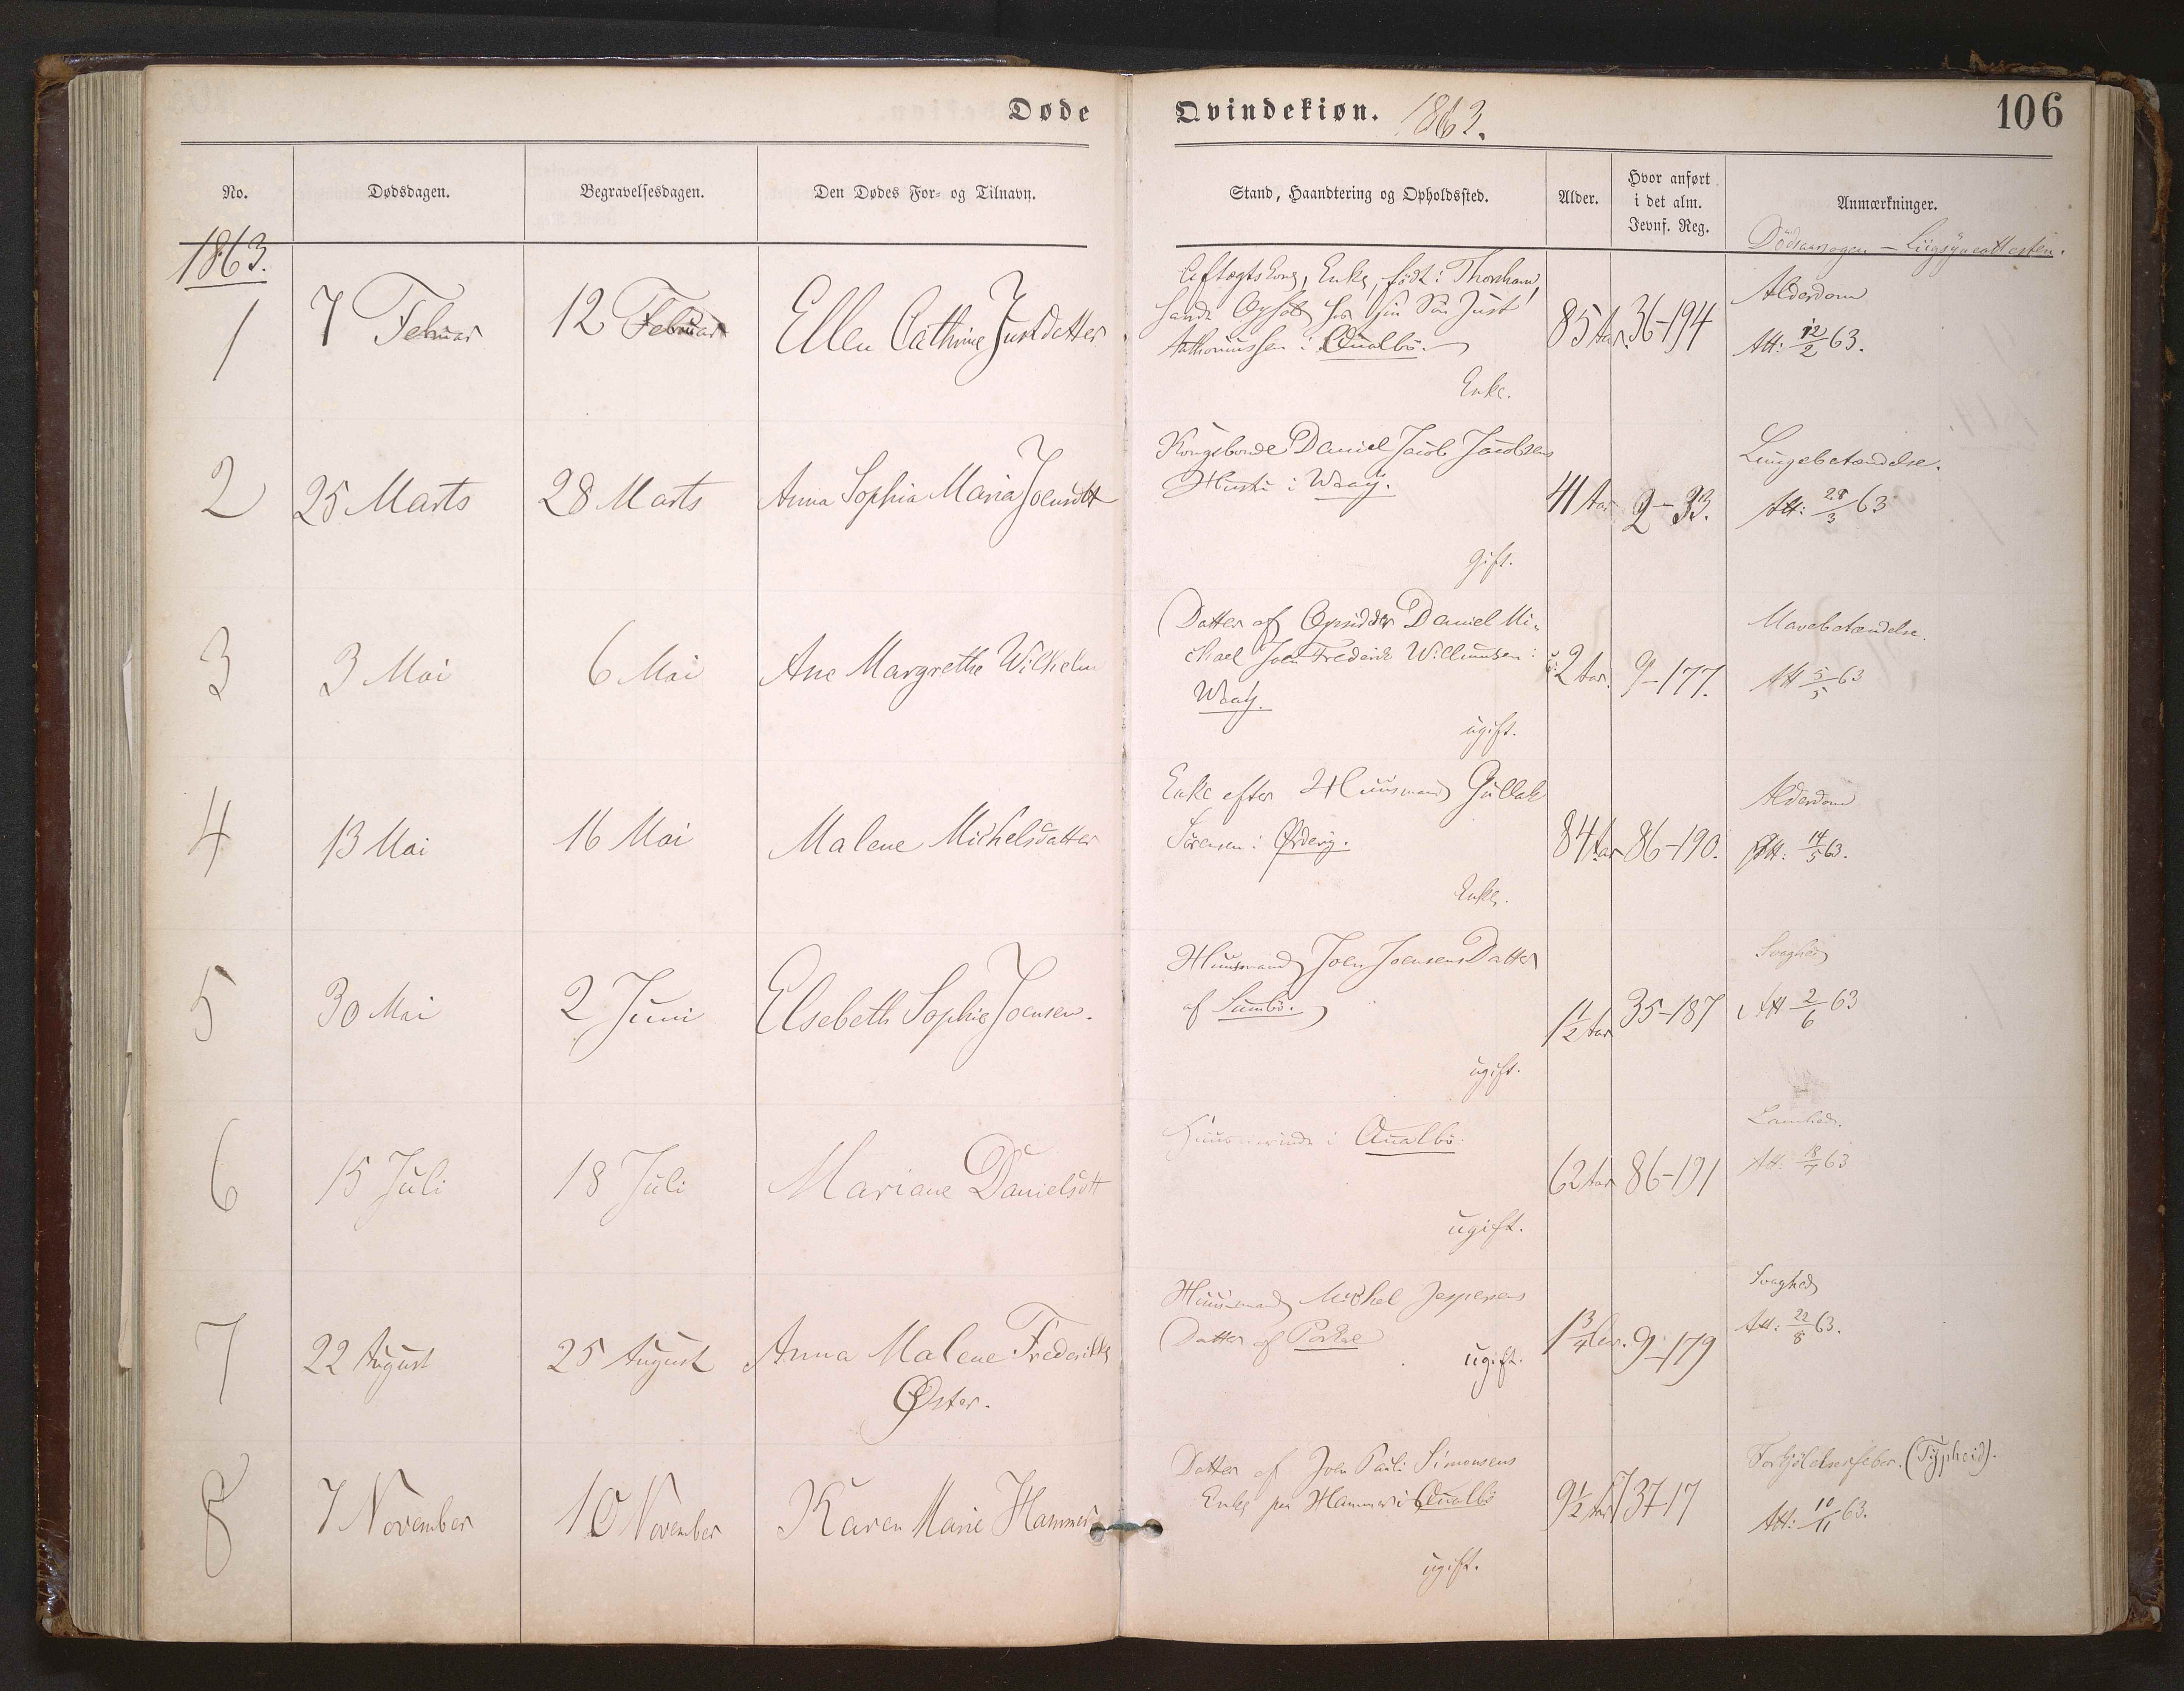 Døde Qvindekiøn. 1863. 106
No. Dødsdagen. Begravelsesdagen. Den Dødes For- og Tilnavn. Stand, Haandtering og Opholdssted. Alder. Hvor anført i det alm. Jevnf. Reg. Anmærkninger.
Dödsaarsagen – Liigsynsattesten.
1863.
1 7 Februar 12 Februar Ellen Cathrine Justdatter
Aftægtskone, Enke, född i Thorshavn,
havde Ophold hos sin Sön Just
i Qualbö.
Enke.
85 Aar. 36-194
Alderdom
Att: 12/2 63.
2 25 Marts 28 Marts Anna Sophia Maria Joensdtt
Kongsbonde Daniel Jacob Jacobsens
Hustru i Waag.
gift.
41 Aar 2-33.
Lungebetændelse.
Att: 28/3 63
3 3 Mai 6 Mai Ane Margrethe Wilhelm
Datter af Opsidder Daniel Mi-
chael Joen Frederik Willumsen i
Waag.
ugift.
2 Aar. 9-177.
Mavebetændelse.
Att 5/5 63
4 13 Mai 16 Mai Malene Michelsdatter
Enke efter Huusmand Gullak
Sörensen i Ørderig.
Enke.
84 Aar 86-190.
Alderdom
Att: 14/5 63.
5 30 Mai 2 Juni Elsebeth Sophie Joensen.
Huusmand Joen Joensens Datter
af Sumbö.
ugift.
1 1/2 Aar 35-187
Svaghed
Att 2/6 63
6 15 Juli 18 Juli Mariane Danielsdtt
i Qualbö.
ugift.
62 Aar 86-191
Lamhed.
Att: 18/7 63
7 22 August 25 August Anna Malene Frederikke
Øster.
Huusmand Michel Jespersens
Datter af Porkere
ugift.
1 3/4 Aar. 9-179
Svaghed
Att: 22/8 63.
8 7 November 10 November Karen Marie Hammer
Datter af Joen Pauli Simonsens
Enke paa Hammer i Qualbö
ugift.
9 1/2 Aar 37-17
Forkjölelsesfeber. (Typheid).
Att: 10/11 63.